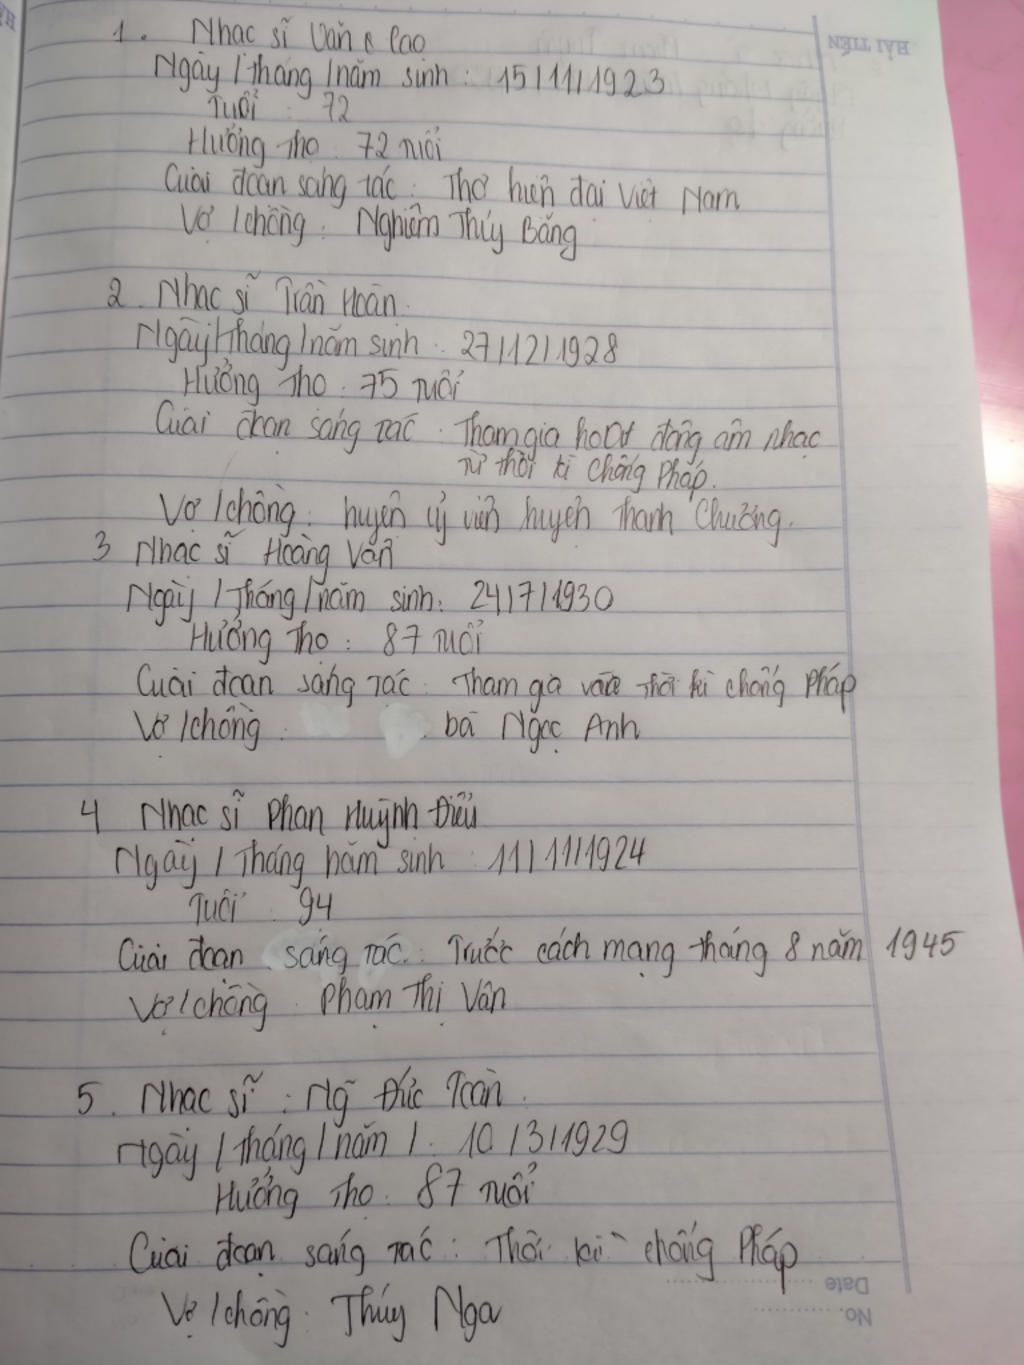 HẢI TIẾN
1. Nhạc sĩ Văn Cao
Ngày / tháng / năm sinh : 15/11/1923
Tuổi : 72
Hưởng thọ : 72 tuổi
Giai đoạn sáng tác : Thơ hiện đại Việt Nam
Vợ / chồng : Nghiêm Thúy Băng
2. Nhạc sĩ Trần Hoàn.
Ngày / tháng / năm sinh : 27/12/1928
Hưởng thọ : 75 tuổi
Giai đoạn sáng tác : Tham gia hoạt động âm nhạc
từ thời kì chống Pháp.
Vợ / chồng : huyện uỷ viên huyện Thanh Chương.
3 Nhạc sĩ Hoàng Vân
Ngày / Tháng / năm sinh : 24/7/1930
Hưởng thọ : 87 tuổi
Giai đoạn sáng tác : Tham gia vào thời kì chống Pháp
Vợ / chồng : bà Ngọc Anh
4 Nhạc sĩ Phan Huỳnh Điểu
Ngày / Tháng năm sinh : 11/11/1924
Tuổi : 94
Giai đoạn sáng tác : Trước cách mạng tháng 8 năm 1945
Vợ / chồng : Phạm Thị Vân
5. Nhạc sĩ : Ng~ Đức Toàn.
Ngày / tháng / năm / : 10/3/1929
Hưởng thọ : 87 tuổi
Giai đoạn sáng tác : Thời kì chống Pháp
Vợ / chồng : Thúy Nga
Date
No.